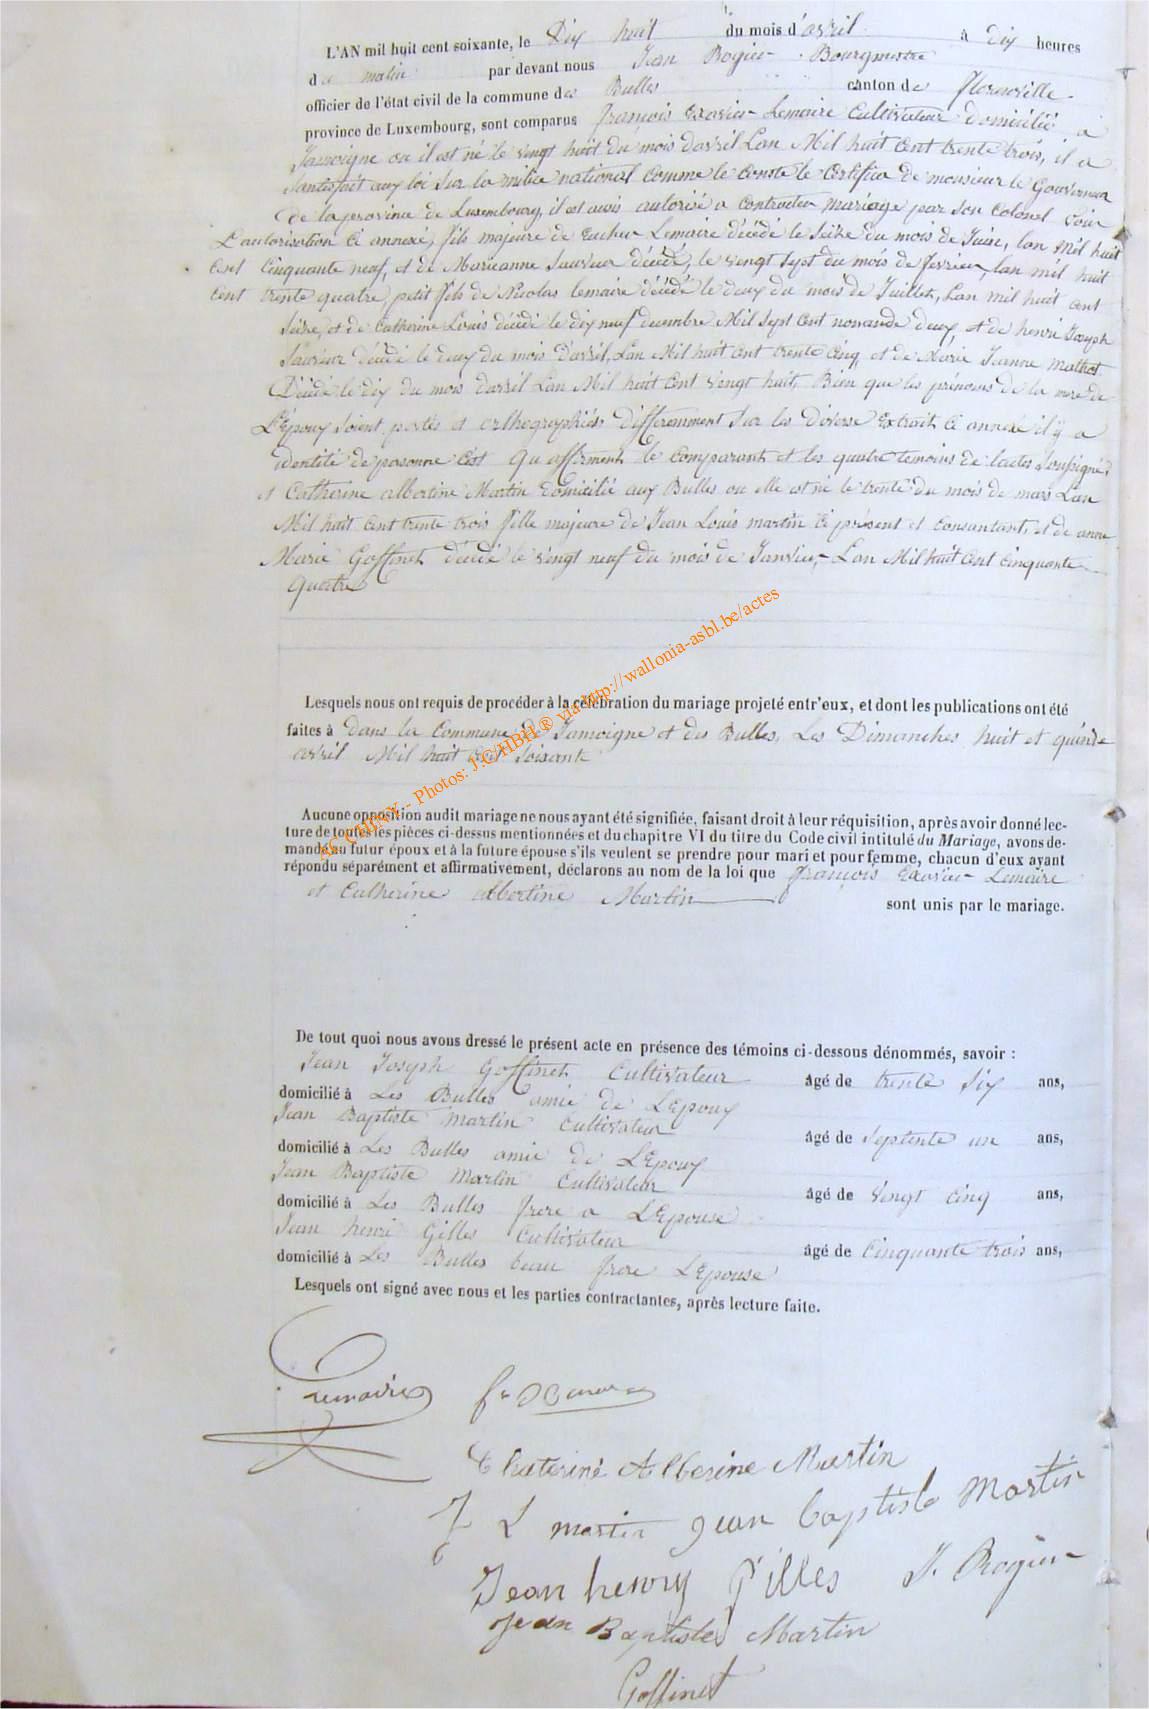 L'AN mil huit cent soixante, le Dix huit du mois d'avril à dix heures
du matin par devant nous Jean Rogier Bourgmestre
officier de l'état civil de la commune des Bulles canton de florenville
province de Luxembourg, sont comparus françois Exavier Lemaire Cultivateur domicilié a
Jamoigne ou il est né le vingt huit du mois davril Lan Mil huit Cent trente trois, il a
Santisfait aux loi Sur la milice national Comme le Conste le Certifica de monsieur le Gouverneur
de la province de Luxembourg, il est autorisé a Contracter mariage par Son Colonel Voir
L'autorisation Ci annexé, fils majeure de Lemaire décédé le Seize du mois de Juin, lan Mil huit
Cent Cinquante neuf, et de Marieanne Sauveur décédé, le vingt Sept du mois de fevrier, lan mil huit
Cent trente quatre, petit fils de Nicolas Lemaire décédé le deux du mois de Juillet, Lan mil huit Cent
Seize, et de Catherine Louis décédé le dix neuf decembre Mil Sept Cent nonande deux, et de henri Joseph
Sauveur décédé le deux du mois D'avril, Lan Mil huit Cent trente Cinq et de Marie Jeanne Mathot
Décédé le dix du mois davril Lan Mil huit Cent vingt huit, Bien que les prénoms de la mere de
L'Epoux Soient portés et orthographiés differemment Sur les Diverse Extrait Ci annexé il y a
identité de personne C'est Qu'affirment le Comparant et les quatre temoins de lactes Soussignés
et Catherine albertine Martin domicilié aux Bulles ou elle est né le trente du mois de mars Lan
Mil huit Cent trente trois fille majeure de Jean Louis martin Ci présent et Consantant, et de anne
Marie Goffinet décédé le vingt neuf du mois de Janvier, Lan Mil huit Cent Cinquante
Quatre
Lesquels nous ont requis de procéder à la célébration du mariage projeté entr'eux, et dont les publications ont été
faites à dans la Commune de Jamoigne et des Bulles, Les Dimanches huit et quinze
avril Mil huit Cent Soixante
Aucune opposition audit mariage ne nous ayant été signifiée, faisant droit à leur réquisition, après avoir donné lec-
ture de toutes les pièces ci-dessus mentionnées et du chapitre VI du titre du Code civil intitulé du Mariage, avons de-
mandé au futur époux et à la future épouse s'ils veulent se prendre pour mari et pour femme, chacun d'eux ayant
répondu séparément et affirmativement, déclarons au nom de la loi que françois Exavier Lemaire
et Catherine albertine Martin
sont unis par le mariage.
De tout quoi nous avons dressé le présent acte en présence des témoins ci-dessous dénommés, savoir :
Jean Joseph Goffinet Cultivateur âgé de trente Six ans,
domicilié à Les Bulles amie de L'Epoux
Jean Baptiste Martin Cultivateur âgé de Septente un ans,
domicilié à Les Bulles amie de L'Epoux
Jean Baptiste Martin Cultivateur âgé de vingt Cinq ans,
domicilié à Les Bulles frere a L'Epouse
Jean henri Gilles Cultivateur âgé de Cinquante trois ans,
domicilié à Les Bulles beau frere L'Epouse
Lesquels ont signé avec nous et les parties contractantes, après lecture faite.
Lemaire
Chaterine Alberine Martin
J L martin jean baptiste Martin
Jean henry Gilles J. Rogier
Jean Baptiste Martin
Goffinet
AC CHINY - Photos: J.C/HBH ® via http://wallonia-asbl.be/actes